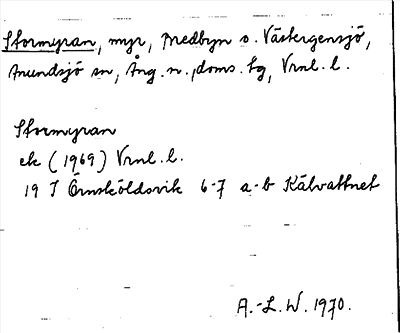 Stormyran, myr, Medbyn o. Västergensjö,
Anundsjö sn, Ång. n., doms. tg, Vrnl. l.
Stormyran
ek (1969) Vrnl. l.
19 I Örnsköldsvik 6-7 a-b Kälvattnet
A.-L. W. 1970.